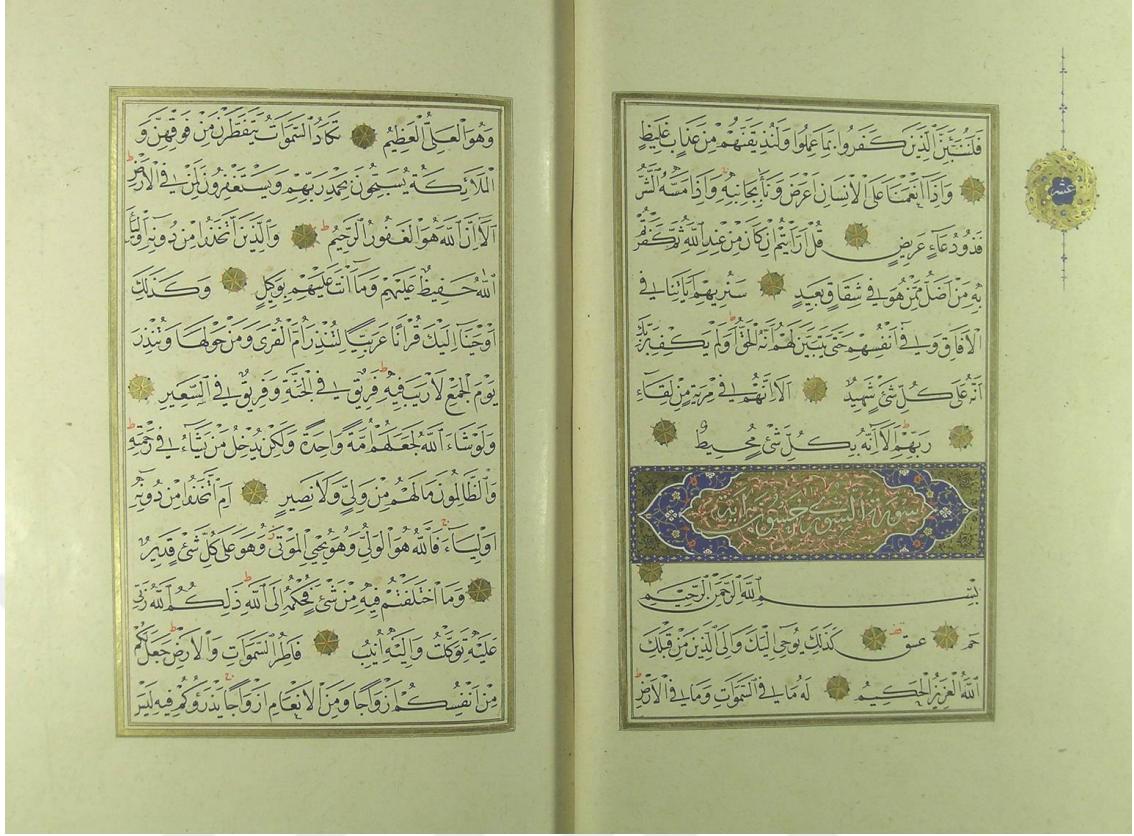 فَلَنُنَبِّئَنَّ الَّذِينَ كَفَرُوا بِمَا عَمِلُوا وَلَنُذِيقَنَّهُمْ مِنْ عَذَابٍ غَلِيظٍ
عشر
وَاِذَا اَنْعَمْنَا عَلَى الْاِنْسَانِ اَعْرَضَ وَنَاٰ بِجَانِبِهِ وَاِذَا مَسَّهُ الشَّرُّ
فَذُو دُعَاءٍ عَرِيضٍ قُلْ اَرَاَيْتُمْ اِنْ كَانَ مِنْ عِنْدِ اللّٰهِ ثُمَّ كَفَرْتُمْ
بِهِ مَنْ اَضَلُّ مِمَّنْ هُوَ فِي شِقَاقٍ بَعِيدٍ سَنُرِيهِمْ اٰيَاتِنَا فِي
الْاٰفَاقِ وَفِي اَنْفُسِهِمْ حَتّٰى يَتَبَيَّنَ لَهُمْ اَنَّهُ الْحَقُّ اَوَلَمْ يَكْفِ بِرَبِّكَ
اَنَّهُ عَلٰى كُلِّ شَيْءٍ شَهِيدٌ اَلَا اِنَّهُمْ فِي مِرْيَةٍ مِنْ لِقَاءِ
رَبِّهِمْ اَلَا اِنَّهُ بِكُلِّ شَيْءٍ مُحِيطٌ
سورة الشورى خمسون آية
بِسْمِ اللّٰهِ الرَّحْمٰنِ الرَّحِيمِ
حٰمٓ عٓسٓقٓ كَذٰلِكَ يُوحِي اِلَيْكَ وَاِلَى الَّذِينَ مِنْ قَبْلِكَ
اللّٰهُ الْعَزِيزُ الْحَكِيمُ لَهُ مَا فِي السَّمٰوَاتِ وَمَا فِي الْاَرْضِ
وَهُوَ الْعَلِيُّ الْعَظِيمُ تَكَادُ السَّمٰوَاتُ يَتَفَطَّرْنَ مِنْ فَوْقِهِنَّ وَ
الْمَلَائِكَةُ يُسَبِّحُونَ بِحَمْدِ رَبِّهِمْ وَيَسْتَغْفِرُونَ لِمَنْ فِي الْاَرْضِ
اَلَا اِنَّ اللّٰهَ هُوَ الْغَفُورُ الرَّحِيمُ وَالَّذِينَ اتَّخَذُوا مِنْ دُونِهِ اَوْلِيَاءَ
اللّٰهُ حَفِيظٌ عَلَيْهِمْ وَمَا اَنْتَ عَلَيْهِمْ بِوَكِيلٍ وَكَذٰلِكَ
اَوْحَيْنَا اِلَيْكَ قُرْاٰنًا عَرَبِيًّا لِتُنْذِرَ اُمَّ الْقُرٰى وَمَنْ حَوْلَهَا وَتُنْذِرَ
يَوْمَ الْجَمْعِ لَا رَيْبَ فِيهِ فَرِيقٌ فِي الْجَنَّةِ وَفَرِيقٌ فِي السَّعِيرِ
وَلَوْ شَاءَ اللّٰهُ لَجَعَلَهُمْ اُمَّةً وَاحِدَةً وَلٰكِنْ يُدْخِلُ مَنْ يَشَاءُ فِي رَحْمَتِهِ
وَالظَّالِمُونَ مَا لَهُمْ مِنْ وَلِيٍّ وَلَا نَصِيرٍ اَمِ اتَّخَذُوا مِنْ دُونِهِ
اَوْلِيَاءَ فَاللّٰهُ هُوَ الْوَلِيُّ وَهُوَ يُحْيِي الْمَوْتٰى وَهُوَ عَلٰى كُلِّ شَيْءٍ قَدِيرٌ
وَمَا اخْتَلَفْتُمْ فِيهِ مِنْ شَيْءٍ فَحُكْمُهُ اِلَى اللّٰهِ ذٰلِكُمُ اللّٰهُ رَبِّي
عَلَيْهِ تَوَكَّلْتُ وَاِلَيْهِ اُنِيبُ فَاطِرُ السَّمٰوَاتِ وَالْاَرْضِ جَعَلَ لَكُمْ
مِنْ اَنْفُسِكُمْ اَزْوَاجًا وَمِنَ الْاَنْعَامِ اَزْوَاجًا يَذْرَؤُكُمْ فِيهِ لَيْسَ